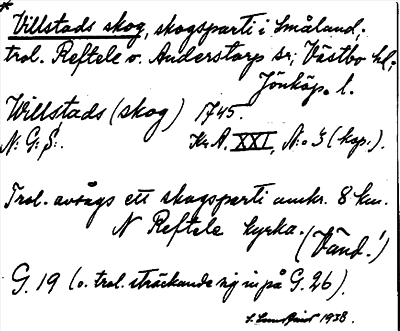 * Villstads skog, skogsparti i Småland;
trol. Reftele o. Anderstorp sr; Västbo hd;
Jönköp. l.
Willstads (skog) 1745.
N: G: S:. Kr. A. XXI, N:o 3 (kop.).
Trol. avsågs ett skogsparti omkr. 8 km.
N Reftele kyrka. (Vänd!)
G. 19 (o. trol. sträckande sig in på G. 26).
1938.